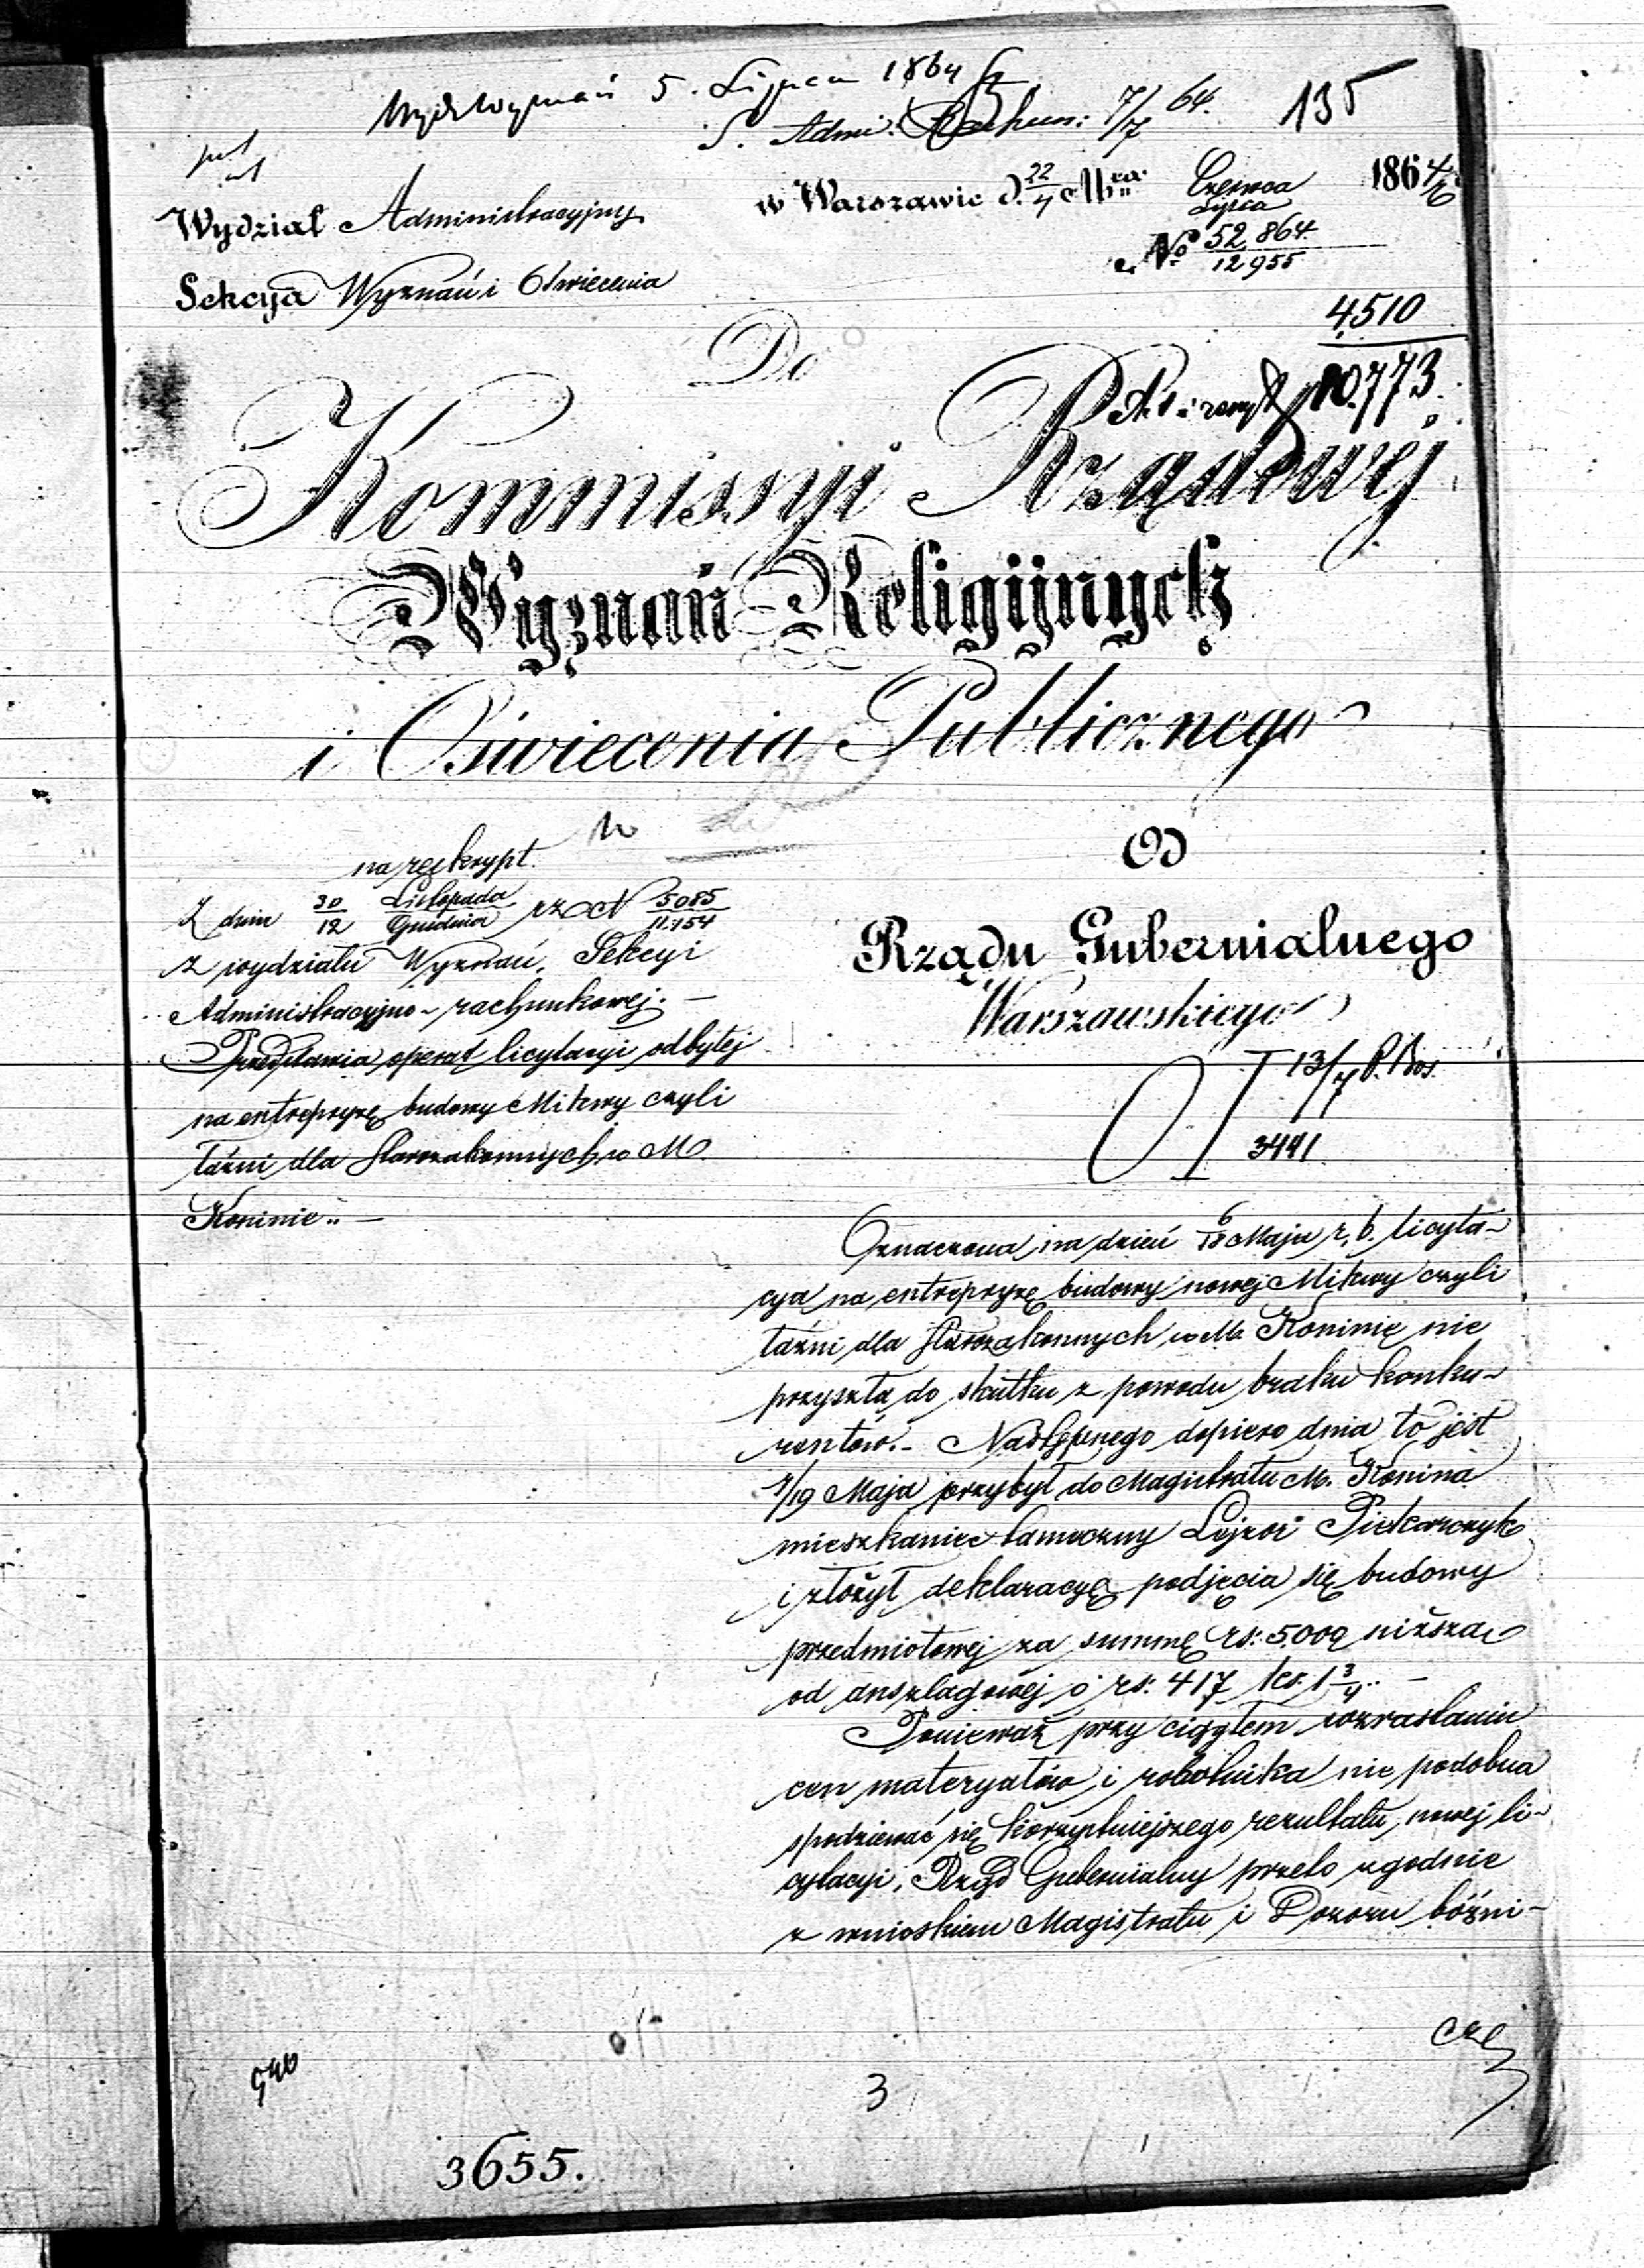 5. Lipca 1864
S. Admi. Rachun: 7/7 64.
135
Wydział Administracyjny
w Warszawie d. 22/4 Mca Czerwca/Lipca 1864
Sekcya Wyznań i Oświecenia
No 52,864/12955
4510
10.773.
Do
Kommissyi Rządowej
Wyznań Religijnych
i Oświecenia Publicznego
na reskrypt
Z dnia 30/12 Listopada/Grudnia rz N 5085/11.754
z wydziału Wyznań, Sekcyi
Administracyjno-rachunkowej. —
Przedstawia operat licytacyi odbytej
na entrepryzę budowy Mikwy czyli
łaźni dla starozakonnych w M.
Koninie. —
Od
Rządu Gubernialnego
Warszawskiego
13/7 P. Bos.
3491
Oznaczona na dzień 6/18 Maja r. b. licyta-
cya na entrepryzę budowy nowej Mikwy czyli
łaźni dla starozakonnych w M. Koninie nie
przyszła do skutku z powodu braku konku-
rentów. – Następnego dopiero dnia to jest
7/19 Maja przybył do Magistratu M. Konina
mieszkaniec tameczny Lejzor Piekarczyk
i złożył deklaracyę podjęcia się budowy
przedmiotowej za summę rs: 5,009 niższą
od anszlagowej o rs: 417 kc: 1 3/4. —
Ponieważ przy ciągłem wzrastaniu
cen materyałów i robotnika nie podobna
spodziewać się korzystniejszego rezultatu, nowej li-
cytacyi, Rząd Gubernialny przeto zgodnie
z wnioskiem Magistratu i Dozoru bóżni-
cze
3
3655.